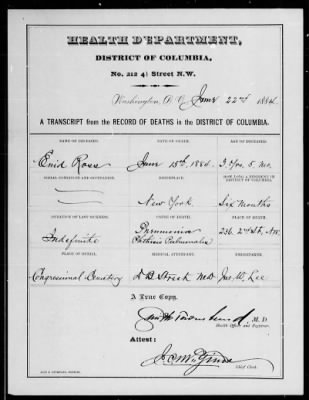 HEALTH DEPARTMENT,
DISTRICT OF COLUMBIA,
No. 212 4½ Street N.W.
Washington, D. C., June 22nd 1884
A TRANSCRIPT from the RECORD OF DEATHS in the DISTRICT OF COLUMBIA.
NAME OF DECEASED. DATE OF DEATH. AGE OF DECEASED.
Enid Ross June 15th 1884. 3 Yrs, 5 Mo.
SOCIAL CONDITION AND OCCUPATION. BIRTHPLACE. HOW LONG A RESIDENT IN DISTRICT OF COLUMBIA.
New York. Six Months
DURATION OF LAST SICKNESS. CAUSE OF DEATH. PLACE OF DEATH.
Indefinite Pneumonia
Phthisis Pulmonalis 236. 2nd St, NW
PLACE OF BURIAL. MEDICAL ATTENDANT. UNDERTAKER.
Congressional Cemetery D. B. Street M.D. Jas. W. Lee
A True Copy.
M. D.
Health Officer and Registrar.
Attest:
Chief Clerk.